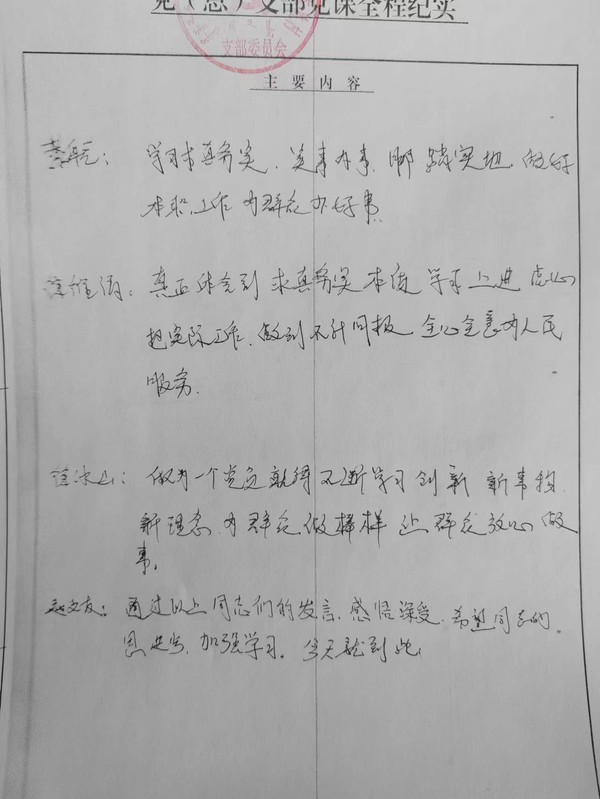 党（总）支部党课全程纪实
支部委员会
主要内容
学习求真务实、关事办事、脚踏实地、做好
本职工作 为群众办好事
真正体会到 求真务实 本质 学习上进 虚心
把实际工作、做到不计回报 全心全意为人民
服务.
做为一个党员就得不断学习创新 新事物、
新理念、为群众做榜样 让群众放心 做
事。
赵文友：通过以上同志们的发言、感悟深受、希望同志们、
加强学习。今天就到此